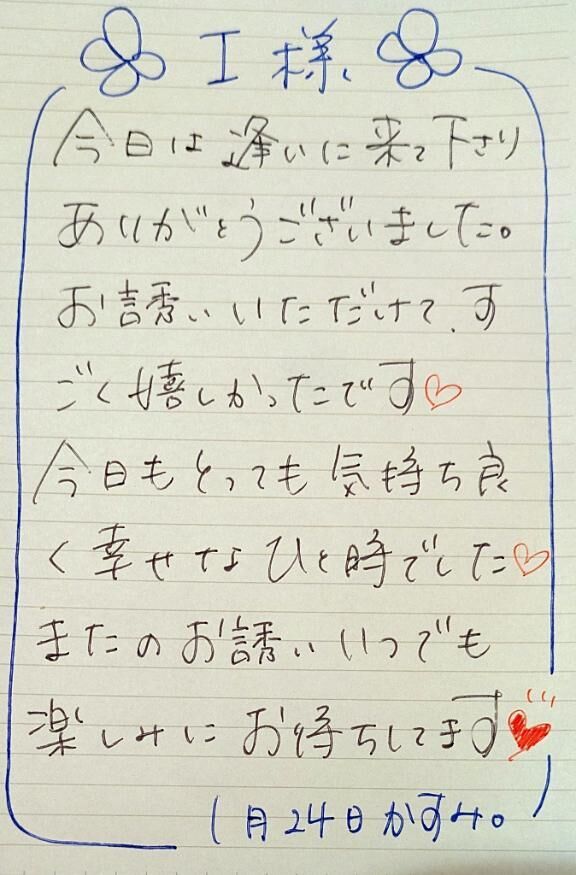 I様
今日は逢いに来て下さり
ありがとうございました。
お誘いいただけて、す
ごく嬉しかったです♡
今日もとっても気持ち良
く幸せなひと時でした♡
またのお誘いいつでも
楽しみにお待ちしてます♥
1月24日かすみ。